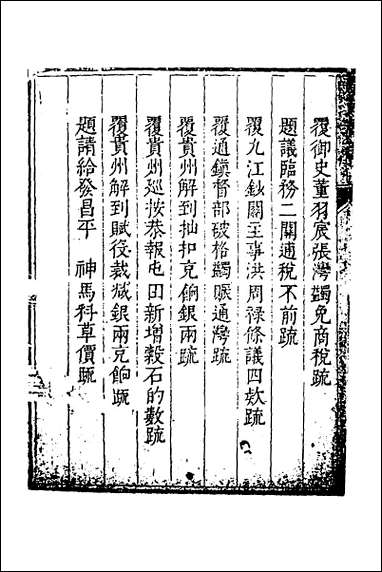 覆御史董羽宸張灣蠲免商稅疏
題議臨務二關逋稅不前疏
覆九江鈔關主事洪周祿條議四欵疏
覆通鎮督部破格蠲賑通灣疏
覆貴州解到抽扣充餉銀兩疏
覆貴州巡按恭報屯田新增穀石的數疏
覆貴州解到賦役裁减銀兩充餉疏
題請給發昌平 神馬料草價疏